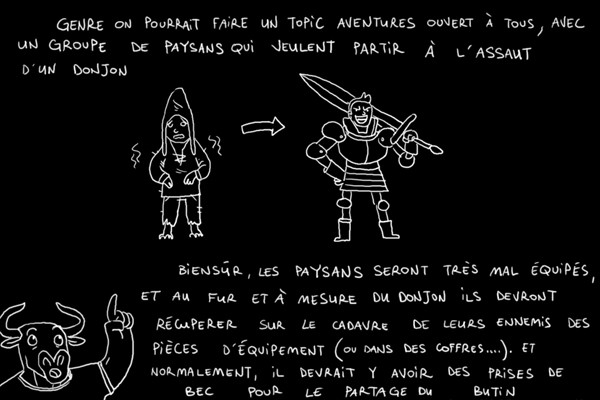 GENRE ON POURRAIT FAIRE UN TOPIC AVENTURES OUVERT À TOUS, AVEC
UN GROUPE DE PAYSANS QUI VEULENT PARTIR À L'ASSAUT
D'UN DONJON
BIENSÛR, LES PAYSANS SERONT TRÈS MAL ÉQUIPÉS,
ET AU FUR ET À MESURE DU DONJON ILS DEVRONT
RÉCUPERER SUR LE CADAVRE DE LEURS ENNEMIS DES
PIÈCES D'ÉQUIPEMENT (OU DANS DES COFFRES....). ET
NORMALEMENT, IL DEVRAIT Y AVOIR DES PRISES DE
BEC POUR LE PARTAGE DU BUTIN